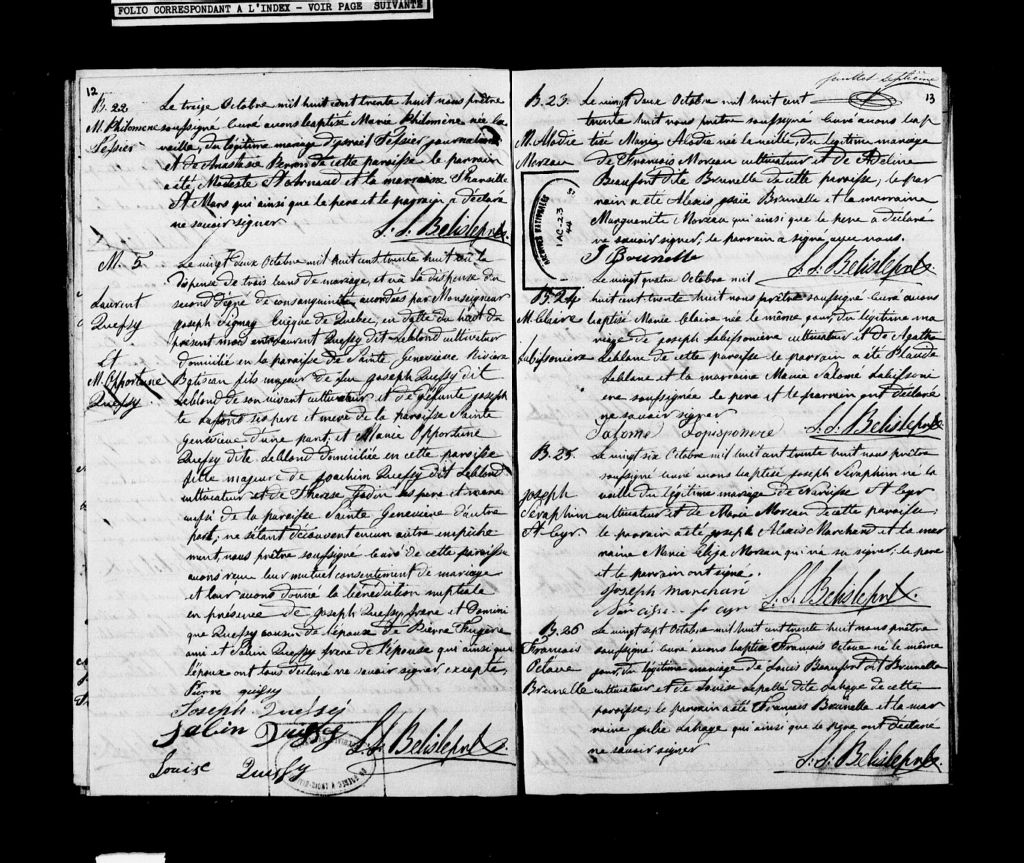 FOLIO CORRESPONDANT A L'INDEX - VOIR PAGE SUIVANTE
12
B. 22
M. Philomene
Tessier
Le treize Octobre mil huit cent trente huit nous prêtre
soussigné Curé avons baptisé Marie Philomène née la
veille, du légitime mariage de Tessier journalier
et de Anastasie de cette paroisse le parrain
a été Modeste St Arnaud et la marraine
St Mars qui ainsi que le pere et le parrain a déclaré
ne savoir signer
S. S. Belisle ptre.
M. 5
Laurent
Quessy
Et
M. Opportune
Quessy
Le vingt deux Octobre mil huit cent trente huit vu la
dispense de trois bans de mariage, et vu la dispense du
second dégré de consanguinité accordées par Monseigneur
joseph Signay Evêque de Quebec, en datte du huit du
présent mois entre Laurent Quessy dit Leblond cultivateur
domicilié en la paroisse de Sainte Geneviève Rivière
Batiscan fils majeur de feu joseph Quessy dit
Leblond de son vivant cultivateur et de défunte joseph
te ses pere et mere de la paroisse Sainte
Geneviève d'une part; et Marie Opportune
Quessy dite Leblond domiciliée en cette paroisse
fille majeure de joachim Quessy dit Leblond
cultivateur et de Therese Godin ses pere et mere
aussi de la paroisse Sainte Geneviève d'autre
part; ne s'étant découvert aucun autre empêche
ment, nous prêtre soussigné Curé de cette paroisse
avons reçu leur mutuel consentement de mariage
et leur avons donné la bénédiction nuptiale
en présence de joseph Quessy frere et Domini
que Quessy cousin de l'époux de Pierre
ami et Quessy frere de l'épouse qui ainsi que
l'époux ont tous déclaré ne savoir signer excepté
Pierre queissy
Joseph Quéssy
Queissy S. S. Belisle ptre.
Louise Queissy
feuillet septième
13
B. 23.
M. Alodie
Moreau
Le vingt deux Octobre mil huit cent
trente huit nous prêtre soussigné Curé avons bap
tisé Marie Alodie née la veille, du légitime mariage
de François Moreau cultivateur et de Adeline
Beaufort dite Brunelle de cette paroisse; le par
rain a été Alexis Brunelle et la marraine
Marguerite Moreau qui ainsi que le pere a déclaré
ne savoir signer; le parrain a signé avec nous.
Bounelle
S. S. Belisle ptre.
B. 24
M. Claire
Labissoniere
Le vingt quatre Octobre mil
huit cent trente huit nous prêtre soussigné Curé avons
baptisé Marie Claire née le même jour, du légitime ma
riage de joseph Labissoniere cultivateur et de Agathe
Leblanc de cette paroisse le parrain a été Claude
Leblanc et la marraine Marie Salomé Labissoni
ere soussignée le pere et le parrain ont déclaré
ne savoir signer
Salomé
S. S. Belisle ptre.
B. 25.
Joseph
Seraphim
St Cyr.
Le vingt six Octobre mil huit cent trente huit nous prêtre
soussigné Curé avons baptisé joseph Seraphim né la
veille du légitime mariage de Narcisse St Cyr
cultivateur et de Marie Moreau de cette paroisse;
le parrain a été joseph Alexis Marchand et la mar
raine Marie Eliza Moreau qui n'a su signer; le pere
et le parrain ont signé.
joseph marchan
S. S. Belisle ptre.
B. 26
Francois
Octave
Brunelle
Le vingt sept Octobre mil huit cent trente huit nous prêtre
soussigné Curé avons baptisé François Octave né le même
jour, du légitime mariage de Louis Beaufort dit Brunelle
cultivateur et de Louise dite Lahaye de cette
paroisse; le parrain a été Francois Brunelle et la mar
raine julie Lahaye qui ainsi que le ont déclaré
ne savoir signer
S. S. Belisle ptre.